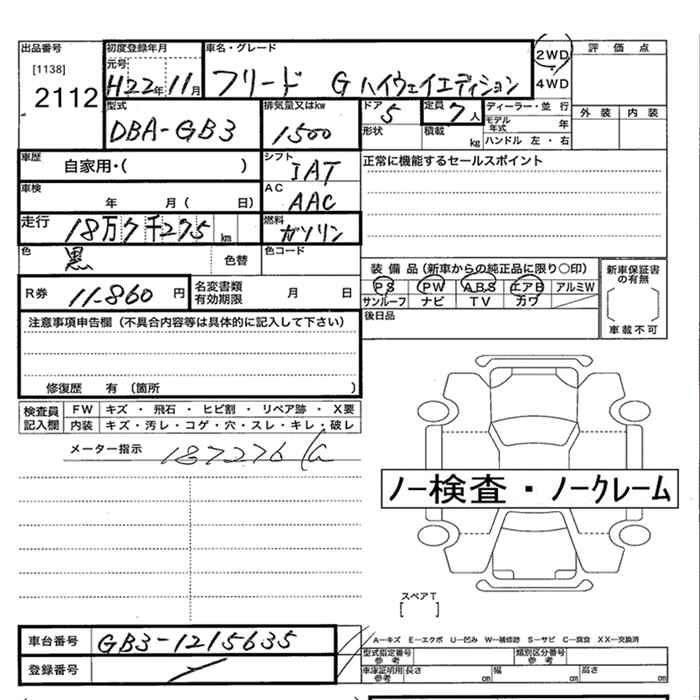 出品番号 初度登録年月 車名・グレード 2WD 評価点
[1138] 元号
2112 H22年11月 フリード G ハイウェイエディション 4WD
型式 排気量又はkw ドア 5 定員 7人 ディーラー・並行 外装 内装
DBA-GB3 1500 形状 積載 kg モデル年式 年
ハンドル 左・右
車歴 自家用・( ) シフト IAT 正常に機能するセールスポイント
車検 年 月 ( 日) AC AAC
走行 18万7千275 km 燃料 ガソリン
色 黒 色替 色コード
装備品(新車からの純正品に限り○印) 新車保証書の有無
R券 11-860 円 名変書類有効期限 月 日
PS PW ABS エアB アルミW
サンルーフ ナビ TV カワ 車載不可
注意事項申告欄(不具合内容等は具体的に記入して下さい) 後日品
修復歴 有 (箇所 )
検査員 FW キズ・飛石・ヒビ割・リペア跡・X要
記入欄 内装 キズ・汚レ・コゲ・穴・スレ・キレ・破レ
メーター指示 187276
ノー検査・ノークレーム
スペアT
[ ]
車台番号 GB3-1215635
A-キズ E-エクボ U-凹み W-補修跡 S-サビ C-腐食 XX-交換済
型式指定番号 参考 類別区分番号 参考
登録番号
車庫証明用 参考 長さ cm 幅 cm 高さ cm